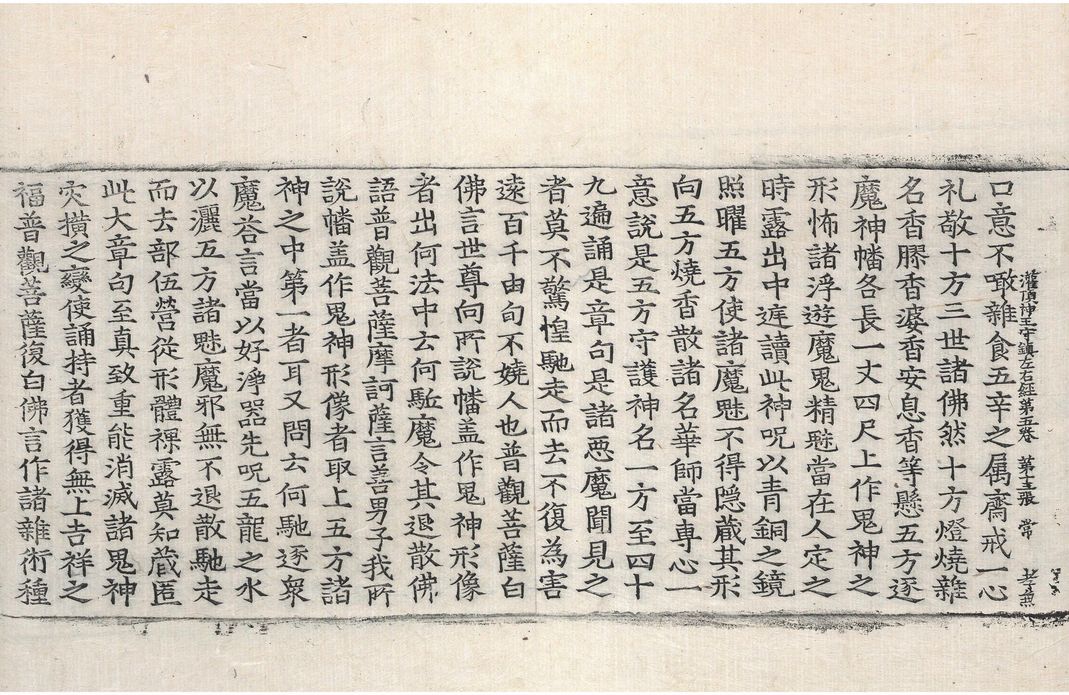 灌頂淨王守鎮左右經第五卷 第十五張 常
口意不噉雜食五辛之属齋戒一心
礼敬十方三世諸佛然十方燈燒雜
名香膠香婆香安息香等懸五方逐
魔神幡各長一丈四尺上作鬼神之
形怖諸浮遊魔鬼精魅當在人定之
時露出中遅讀此神呪以青銅之鏡
照曜五方使諸魔魅不得隠蔵其形
向五方燒香散諸名華師當專心一
意說是五方守護神名一方至四十
九遍誦是章句是諸惡魔聞見之
者莫不驚惶馳走而去不復為害
遠百千由旬不嬈人也普觀菩薩白
佛言世尊向所說幡盖作鬼神形像
者出何法中云何駈魔令其退散佛
語普觀菩薩摩訶薩言善男子我所
說幡盖作鬼神形像者取上五方諸
神之中第一者耳又問云何馳逐衆
魔荅言當以好淨器先呪五龍之水
以灑五方諸魅魔邪無不退散馳走
而去部伍營從形體裸露莫知蔵匿
此大章句至真致重能消滅諸鬼神
灾横之變使誦持者獲得無上吉祥之
福普觀菩薩復白佛言作諸雜術種